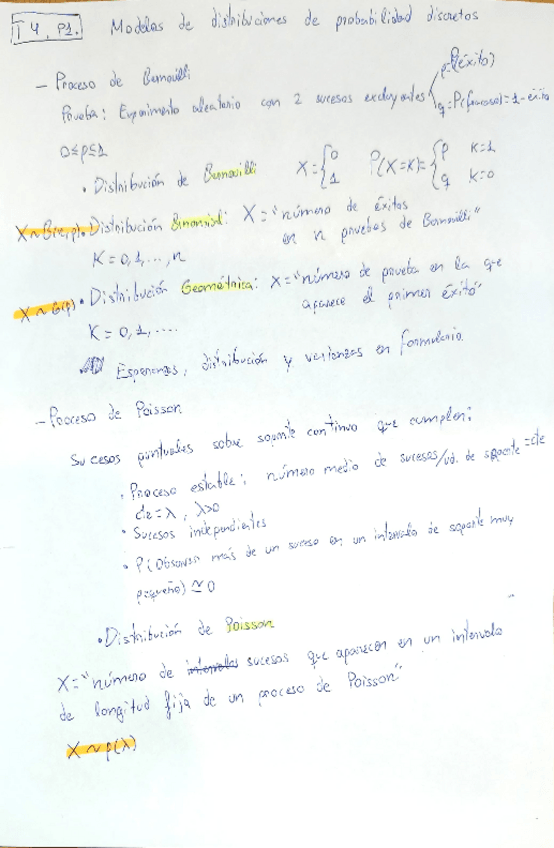 T4, P1. Modelos de distribuciones de probabilidad discretos
- Proceso de Bernouilli
p=P(éxito)
Prueba: Experimento aleatorio con 2 sucesos excluyentes
q=P(fracaso)=1-éxito
0≤p≤1
• Distribución de Bernouilli X={0 1 P(X=K)={p K=1 q K=0
X~B(n,p) • Distribución Binomial: X="número de éxitos
en n pruebas de Bernouilli"
K=0,1,...,n
X~G(p) • Distribución Geométrica: X="número de prueba en la que
aparece el primer éxito"
K=0,1,....
Esperanzas, distribución y varianzas en formulario.
- Proceso de Poisson
Sucesos puntuales sobre soporte continuo que cumplen:
• Proceso estable: número medio de sucesos/ud. de soporte=cte
cte=λ, λ>0
• Sucesos independientes
• P(Observar más de un suceso en un intervalo de soporte muy
pequeño)≃0
• Distribución de Poisson
X="número de intervalos sucesos que aparecen en un intervalo
de longitud fija de un proceso de Poisson"
X~p(λ)